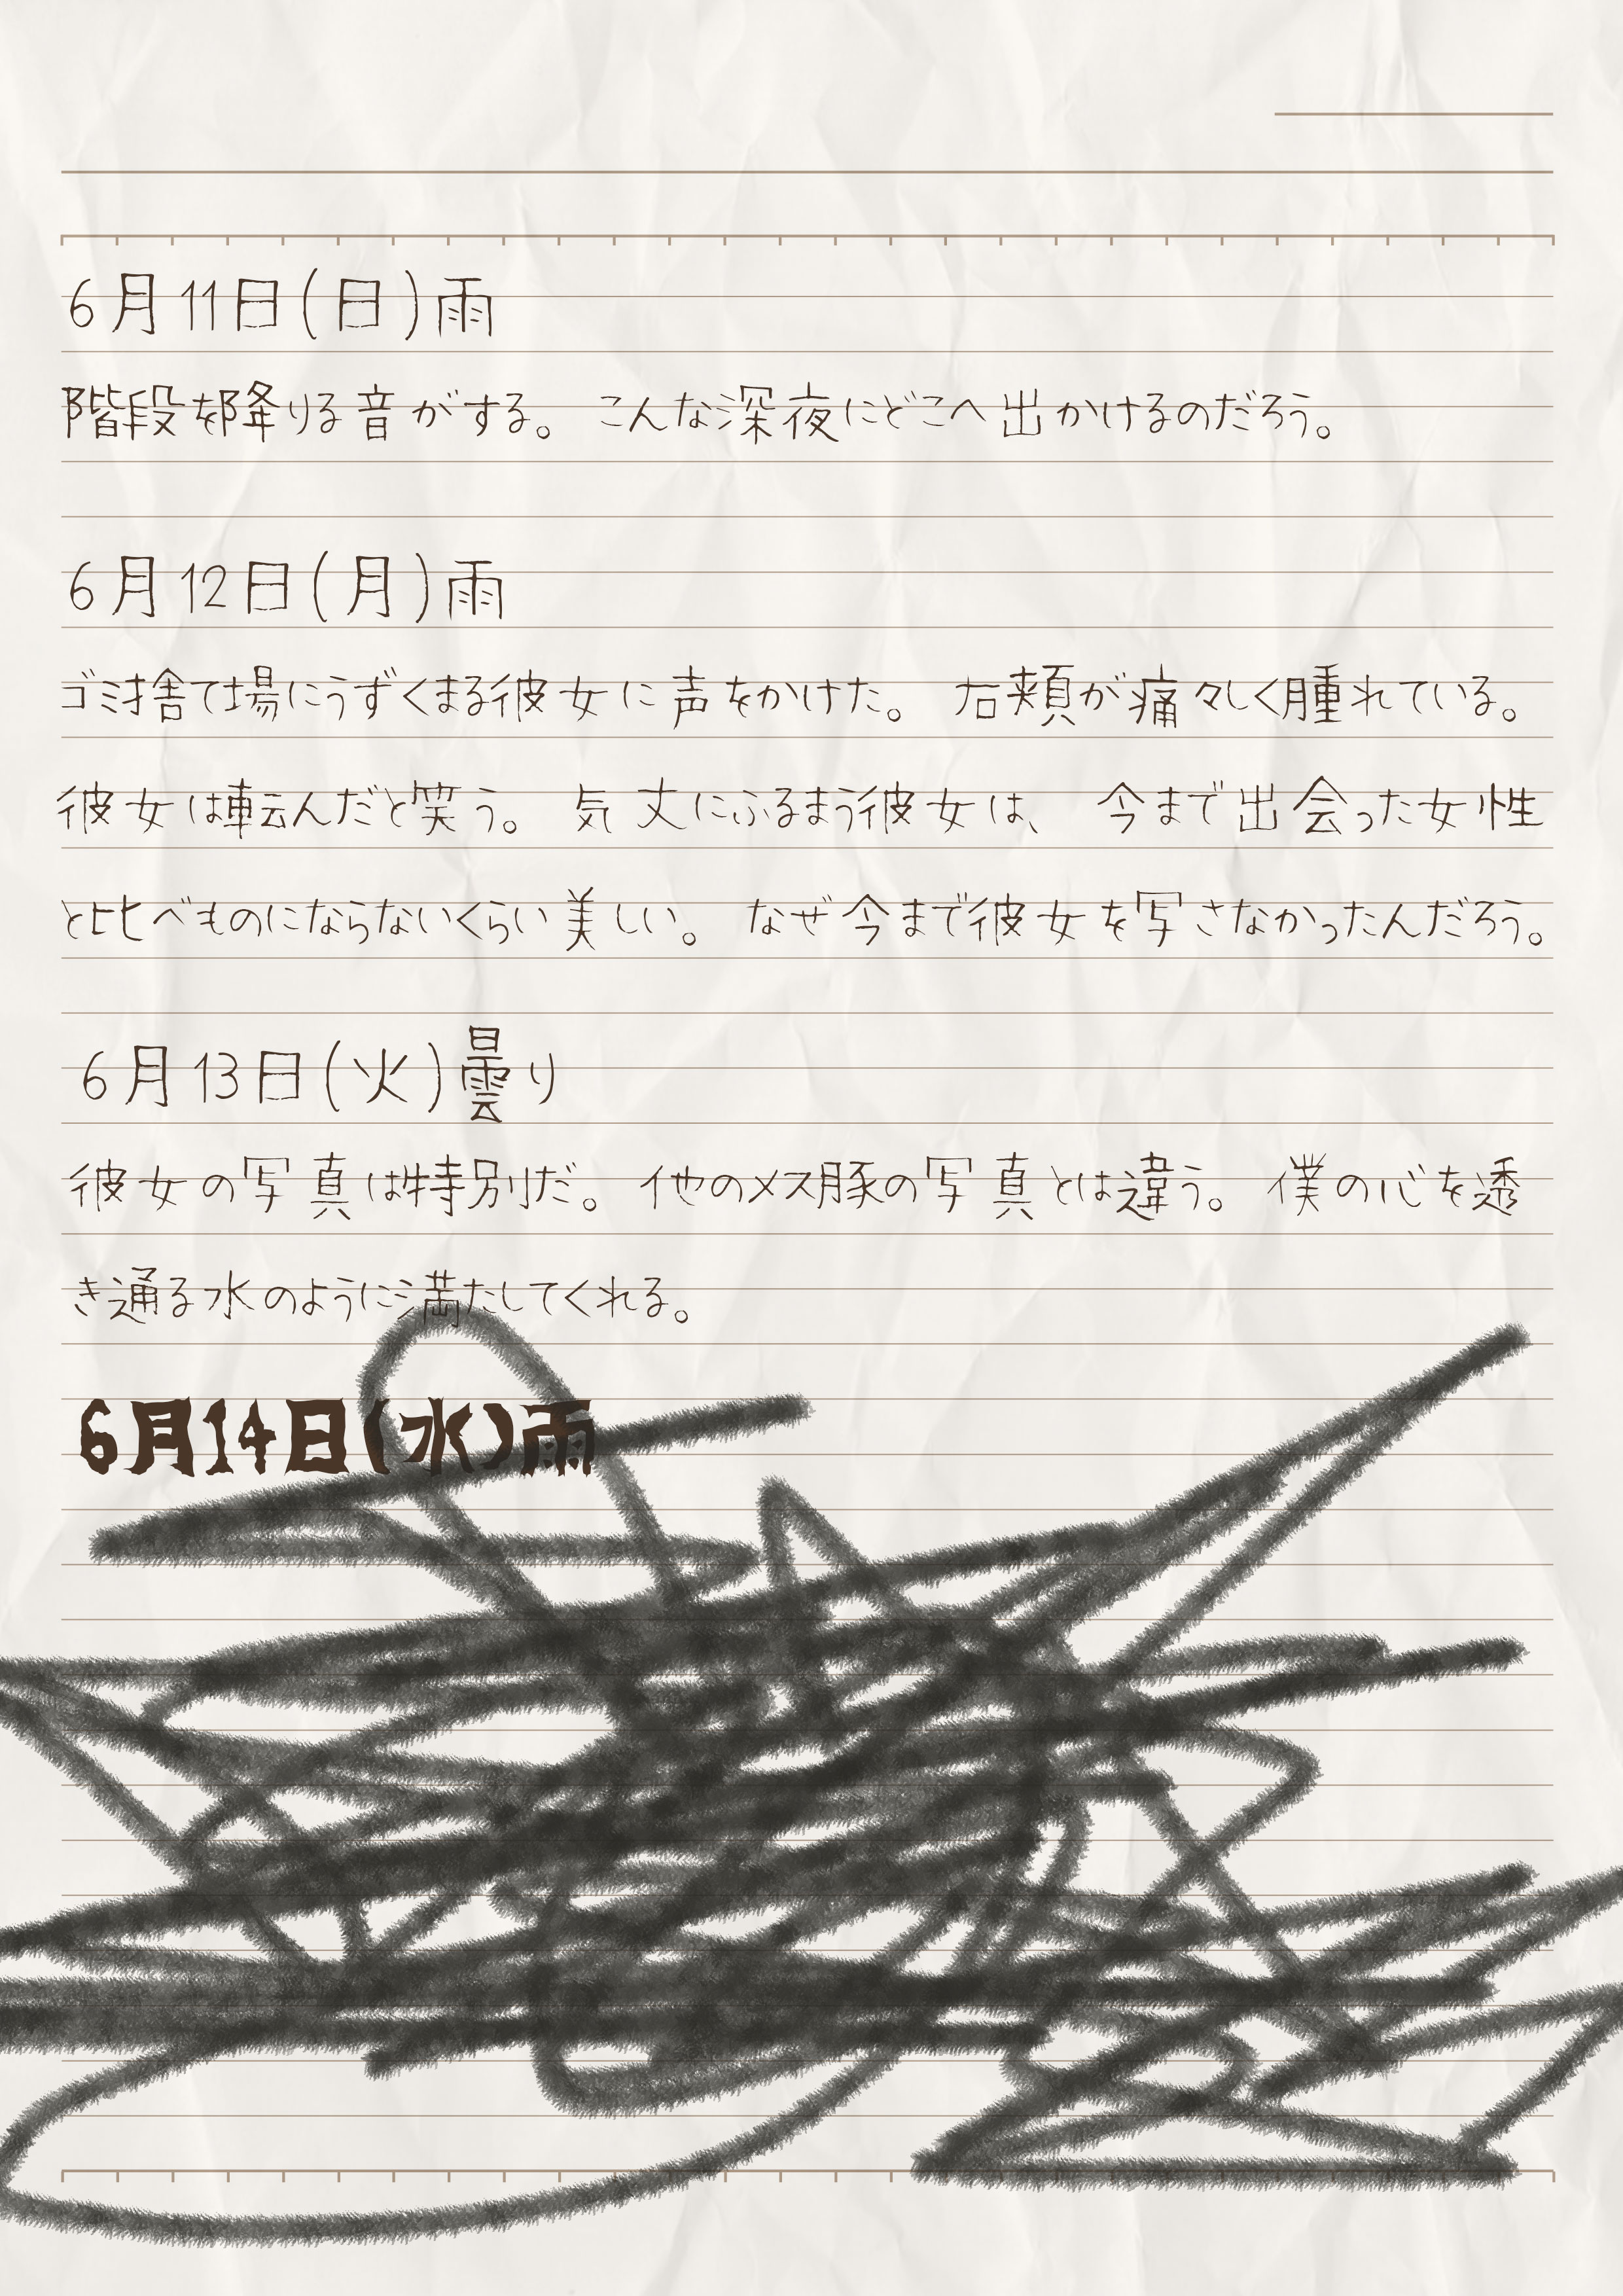 6月11日(日)雨
階段を降りる音がする。こんな深夜にどこへ出かけるのだろう。
6月12日(月)雨
ゴミ捨て場にうずくまる彼女に声をかけた。右頬が痛々しく腫れている。
彼女は転んだと笑う。気丈にふるまう彼女は、今まで出会った女性
と比べものにならないくらい美しい。なぜ今まで彼女を写さなかったんだろう。
6月13日(火)曇り
彼女の写真は特別だ。他のメス豚の写真とは違う。僕の心を透
き通る水のように満たしてくれる。
6月14日(水)雨